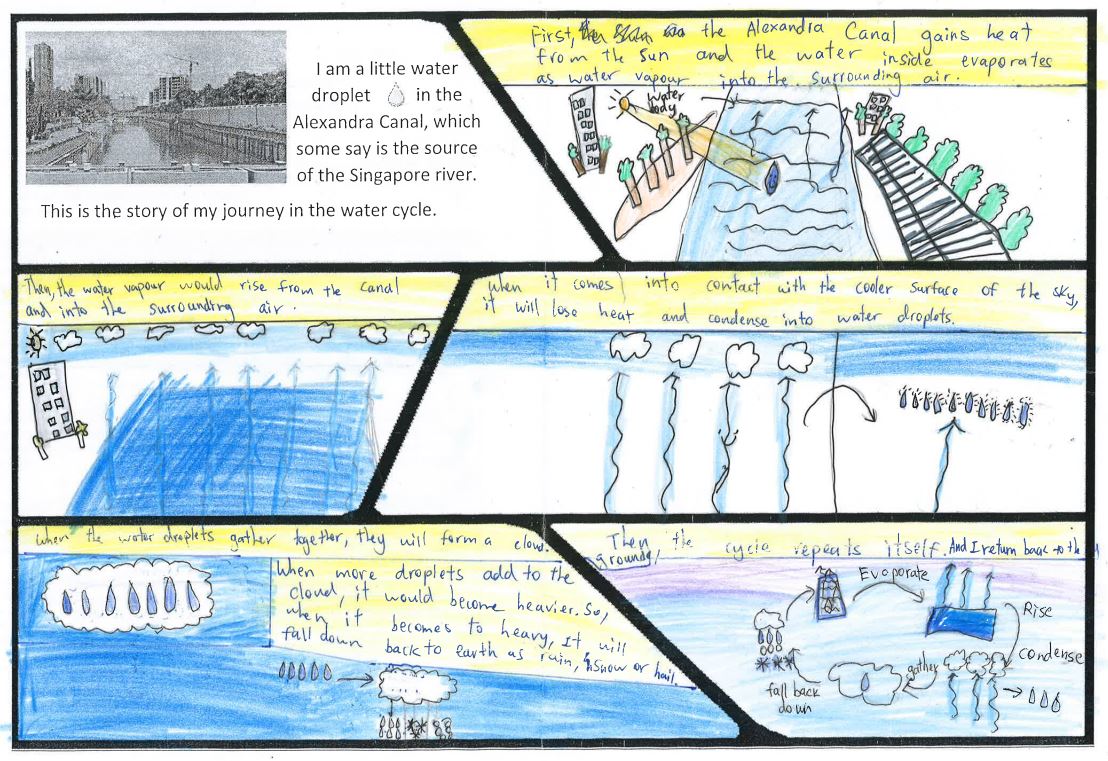 I am a little water
droplet in the
Alexandra Canal, which
some say is the source
of the Singapore river.
This is the story of my journey in the water cycle.
First, the Alexandra Canal gains heat
from the Sun and the water inside evaporates
as water vapour into the surrounding air.
water
body
Then, the water vapour would rise from the canal
and into the surrounding air.
When it comes into contact with the cooler surface of the sky,
it will lose heat and condense into water droplets.
when the water droplets gather together, they will form a cloud.
When more droplets add to the
cloud, it would become heavier. So,
when it becomes to heavy, It will
fall down back to earth as rain, snow or hail.
Then the cycle repeats itself. And I return back to the
ground,
Evaporate
Rise
condense
gather
fall back
down